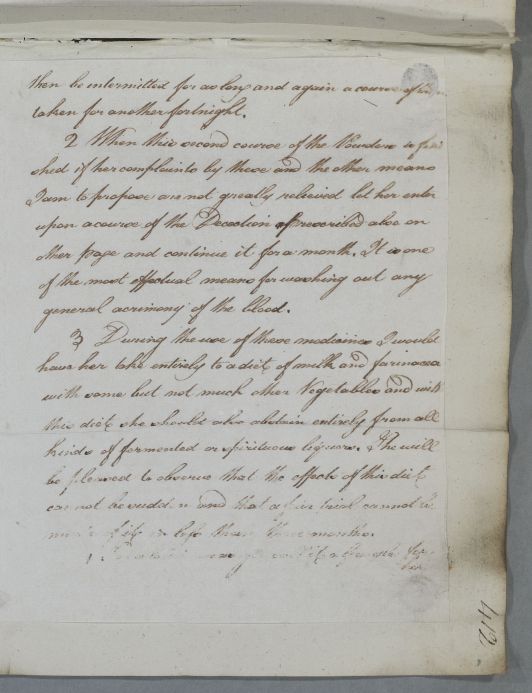 then be intermitted for as long and again a course of
taken for another fortnight.
2 When this second course of the Powders is fini
shed if her complaints by these and the other means
I am to propose are not greatly relieved let her enter
upon a course of the Decoction prescribed also on
other page and continue it for a month. It is one
of the most effectual means for washing out any
general acrimony of the blood.
3 During the use of these medicines I would
have her take entirely to a diet of milk and farinacea
with some but not much other Vegetables and with
this diet she should also abstain entirely from all
kinds of fermented or spiritous liquors. She will
be pleased to observe that the effects of this diet
cannot be sudden and that a fair trial cannot be
made of it in less than three months.
412